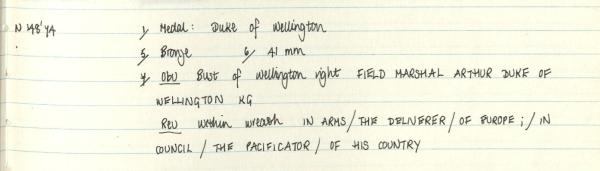 N 48'74 1/ Medal: DUKE of Wellington
5/ Bronze 6/ 41 mm
7/ Obv Bust of Wellington right FIELD MARSHAL ARTHUR DUKE OF
WELLINGTON KG
Rev within wreath IN ARMS/THE DELIVERER/OF EUROPE;/IN
COUNCIL/THE PACIFICATOR/OF HIS COUNTRY